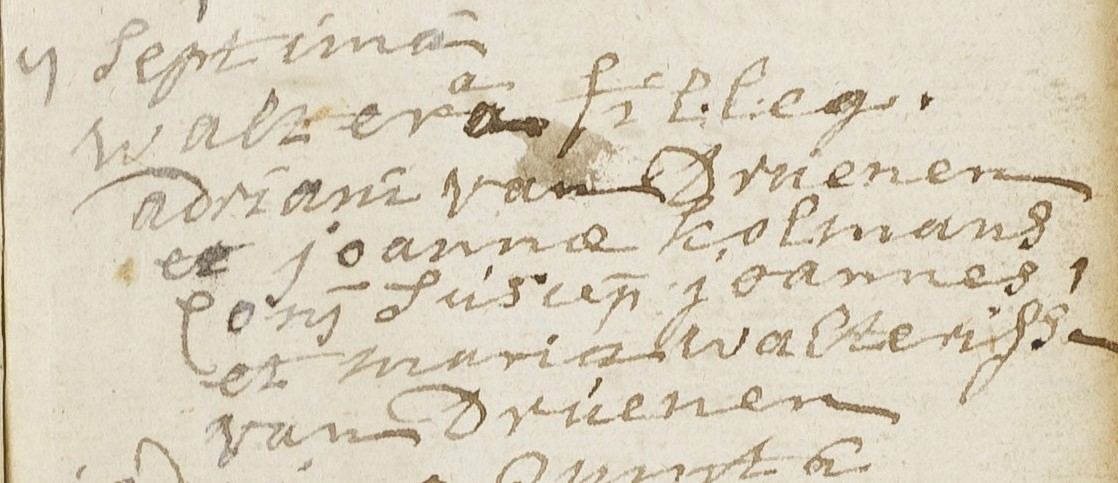 7 Septima
Walterã a fil: leg.
adriani van Druenen
et joannæ Kolmans
Conj Suscep joannes,
et maria walteriss
van Druenen
Quinta